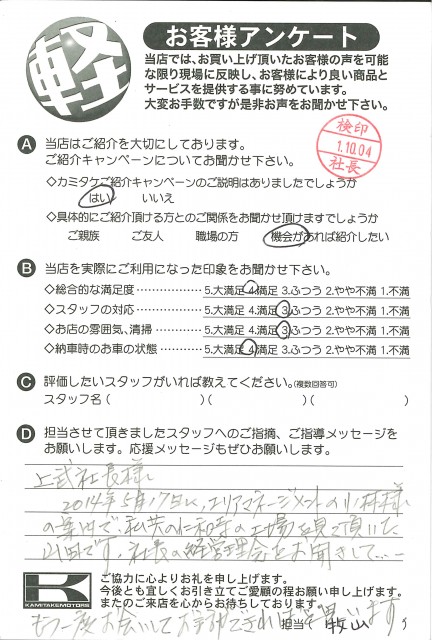 軽
お客様アンケート
当店では、お買い上げ頂いたお客様の声を可能
な限り現場に反映し、お客様により良い商品と
サービスを提供する事に努めています。
大変お手数ですが是非お声をお聞かせ下さい。
検印
1.10.04
社長
A 当店はご紹介を大切にしております。
ご紹介キャンペーンについてお聞かせ下さい。
◇カミタケご紹介キャンペーンのご説明はありましたでしょうか
はい いいえ
◇具体的にご紹介頂ける方とのご関係をお聞かせ頂けますでしょうか
ご親族 ご友人 職場の方 機会があれば紹介したい
B 当店を実際にご利用になった印象をお聞かせ下さい。
◇総合的な満足度 ……………… 5.大満足 4.満足 3.ふつう 2.やや不満 1.不満
◇スタッフの対応 ……………… 5.大満足 4.満足 3.ふつう 2.やや不満 1.不満
◇お店の雰囲気、清掃 ………… 5.大満足 4.満足 3.ふつう 2.やや不満 1.不満
◇納車時のお車の状態 ………… 5.大満足 4.満足 3.ふつう 2.やや不満 1.不満
C 評価したいスタッフがいれば教えてください。(複数回答可)
スタッフ名( )( )( )
D 担当させて頂きましたスタッフへのご指摘、ご指導メッセージを
お願いします。応援メッセージもぜひお願いします。
上武社長様
2014年5月17日に、エリアマネージメントの小林様
の案内で、私共の仁和寺の工場を見て頂いた
山田です。社長の経営理念をお聞きして、…
K
KAMITAKEMOTORS
ご協力に心よりお礼を申し上げます。
今後とも宜しくお引き立てご愛顧の程お願い申し上げます。
またのご来店を心からお待ちしております。
もう一度お会いして
担当 牧山